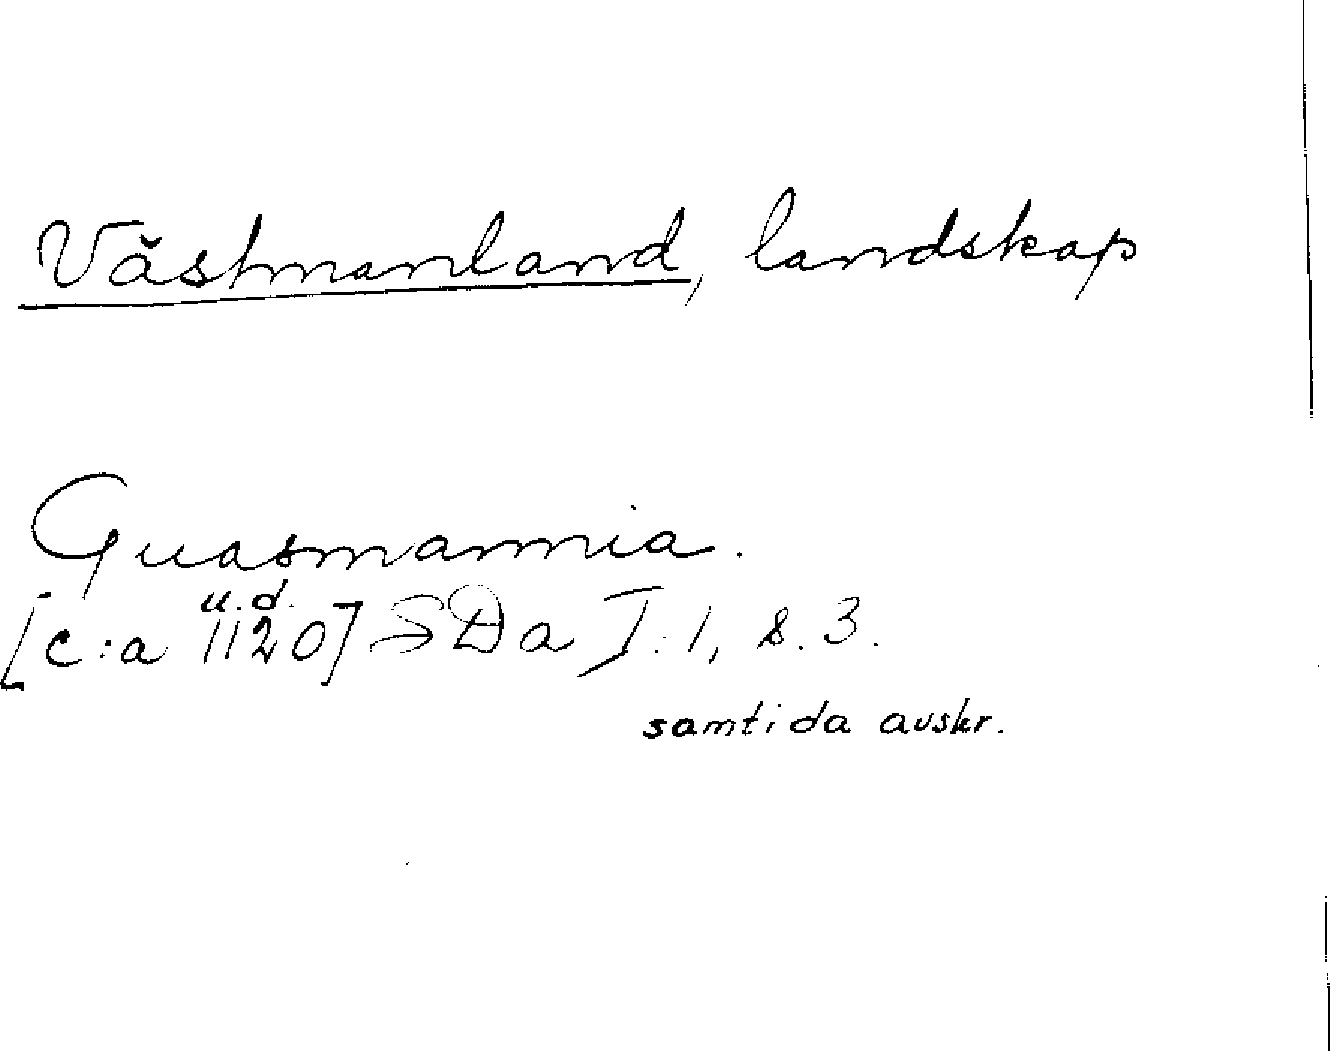 Västmanland, landskap
Guasmannia.
u.d.
[c:a 1120] SDa I:1, s. 3.
samtida avskr.